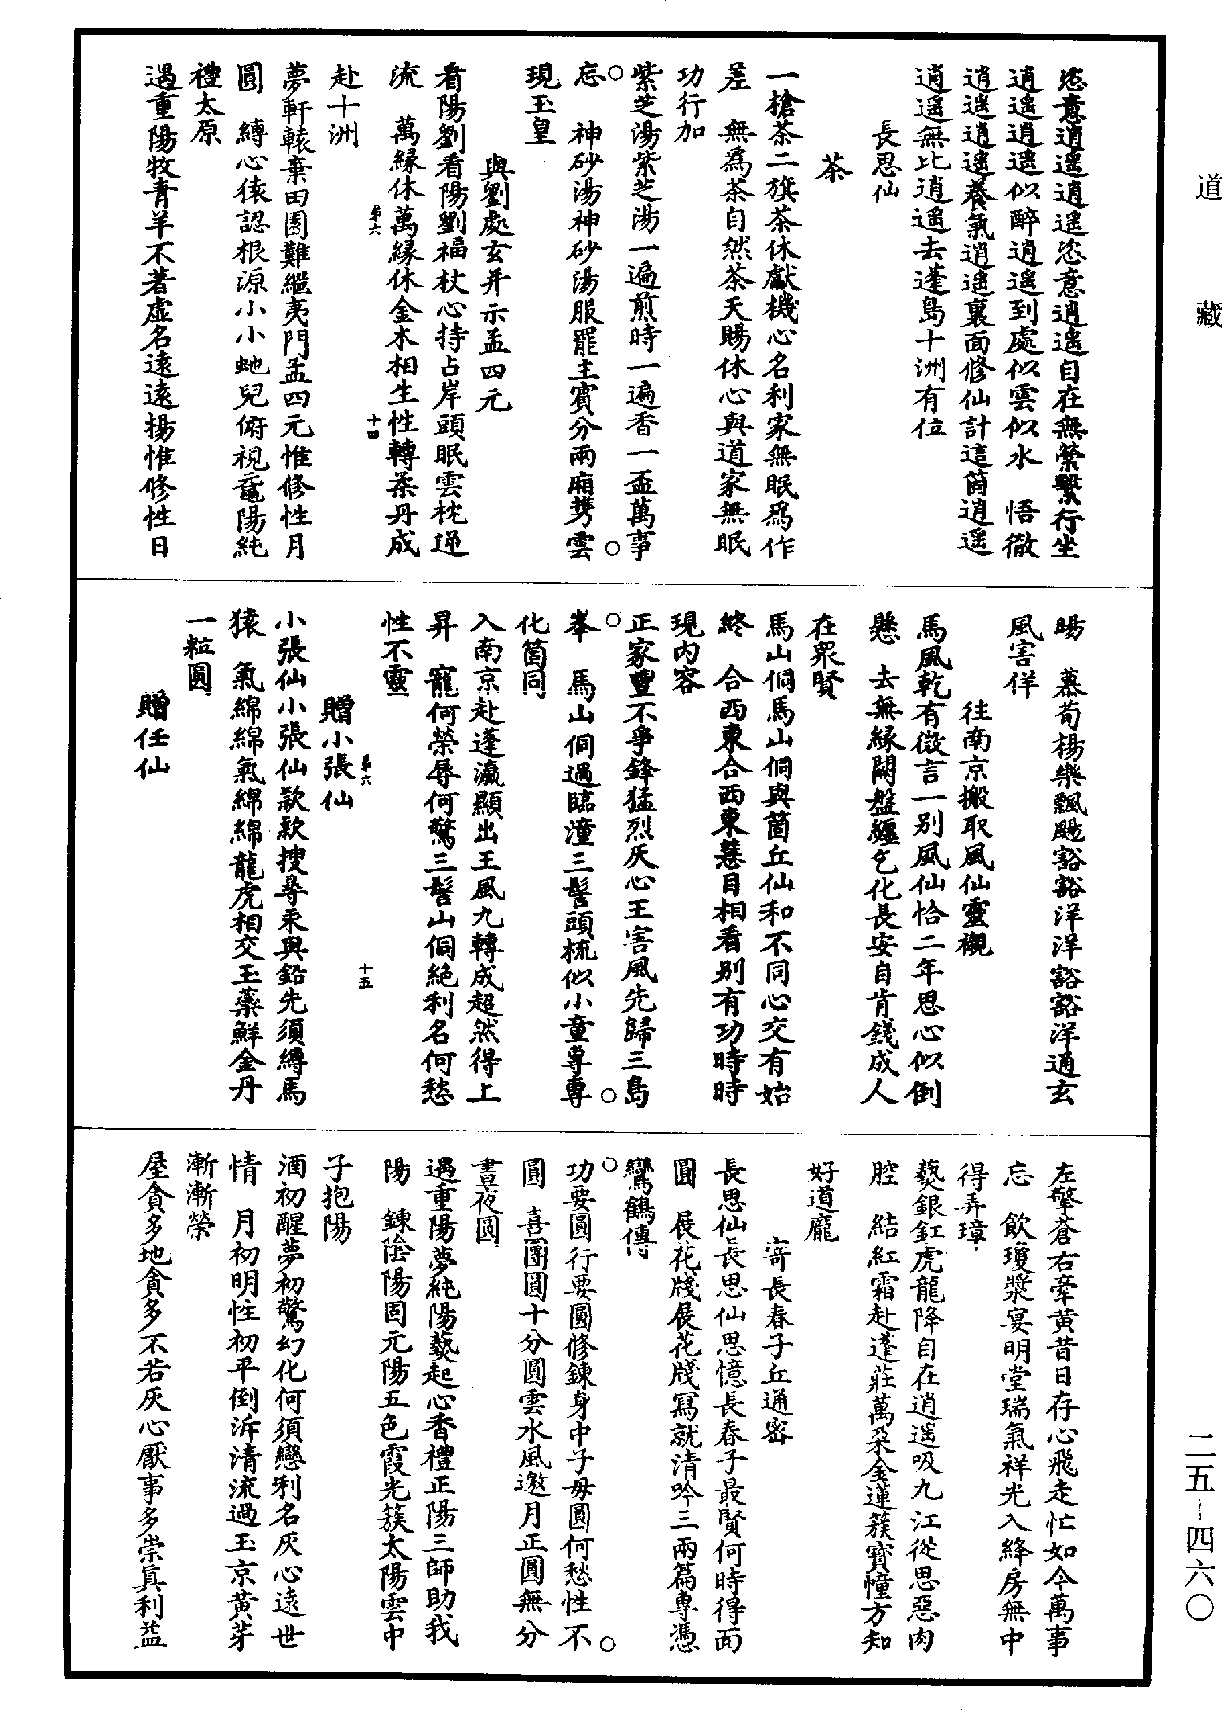 道藏
恣意逍遥逍遥恣意逍遥自在無縈繫行坐
逍遥逍遥似醉逍遥到處似雲似水　悟徹
逍遥逍遥養氣逍遥裏面修仙計這箇逍遥
逍遥無比逍遥去蓬島十洲有位
長思仙
茶
一槍茶二旗茶休獻機心名利家無眠爲作
差　無爲茶自然茶天賜休心與道家無眠
功行加
紫芝湯紫芝湯一遍煎時一遍香一盃萬事
忘　神砂湯神砂湯服罷主賓分兩廂携雲
現玉皇
與劉處玄幷示孟四元
看陽劉看陽劉福杖心持占岸頭眠雲枕逆
流　萬緣休萬緣休金木相生性轉柔丹成
赴十洲
夢軒轅棄田園難繼夷門孟四元惟修性月
圓　縛心猿認根源小小虵兒俯視黿陽純
禮太原
遇重陽牧青羊不著虛名遠遠揚惟修性日
暘　慕荀楊樂飄颺豁豁洋洋豁豁洋通玄
風害佯
往南京搬取風仙靈櫬
馬風乾有微言一別風仙恰二年思心似倒
懸　去無緣闕盤纏乞化長安自肯錢成人
在衆賢
馬山侗馬山侗與箇丘仙和不同心交有始
終　合西東合西東慧目相看別有功時時
現內容
正家豐不爭鋒猛烈灰心王害風先歸三島
峯　馬山侗遇臨潼三髻頭梳似小童專專
化箇同
入南京赴蓬瀛顯出王風九轉成超然得上
昇　寵何榮辱何驚三髻山侗絕利名何愁
性不靈
贈小張仙
小張仙小張仙款款搜尋汞與鉛先須縛馬
猿　氣綿綿氣綿綿龍虎相交玉藥鮮金丹
一粒圓
贈任仙
左擎蒼右牽黃昔日存心飛走忙如今萬事
忘　飲瓊漿宴明堂瑞氣祥光入絳房無中
得弄璋
爇銀釭虎龍降自在逍遥吸九江從思惡肉
腔　結紅霜赴蓬莊萬朶金蓮簇寶幢方知
好道龐
寄長春子丘通密
長思仙長思仙思憶長春子最賢何時得面
圓　展花牋展花牋寫就清吟三兩篇專憑
鸞鶴傳
功要圓行要圓修鍊身中子母圓何愁性不
圓　喜團圓十分圓雲水風邀月正圓無分
晝夜圓
遇重陽夢純陽爇起心香禮正陽三師助我
陽　鍊陰陽固元陽五色霞光簇太陽雲中
子抱陽
酒初醒夢初驚幻化何須戀利名灰心遠世
情　月初明性初平倒泝清流過玉京黃芽
漸漸榮
屋貪多地貪多不若灰心厭事多崇真利益
第六
十四
第六
十五
二五-四六〇